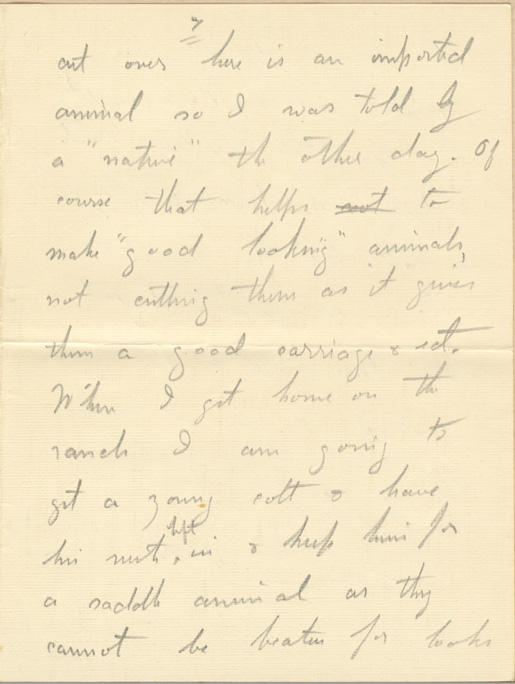 7
cut over here is an imported
animal so I was told by
a "native" the other day. Of
course that helps not to
make "good looking" animals,
not cutting them as it gives
them a good carriage & ect.
When I get home on the
ranch I am going to
get a young colt & have
his nuts left in & keep him for
a saddle animal as they
cannot be beaten for looks